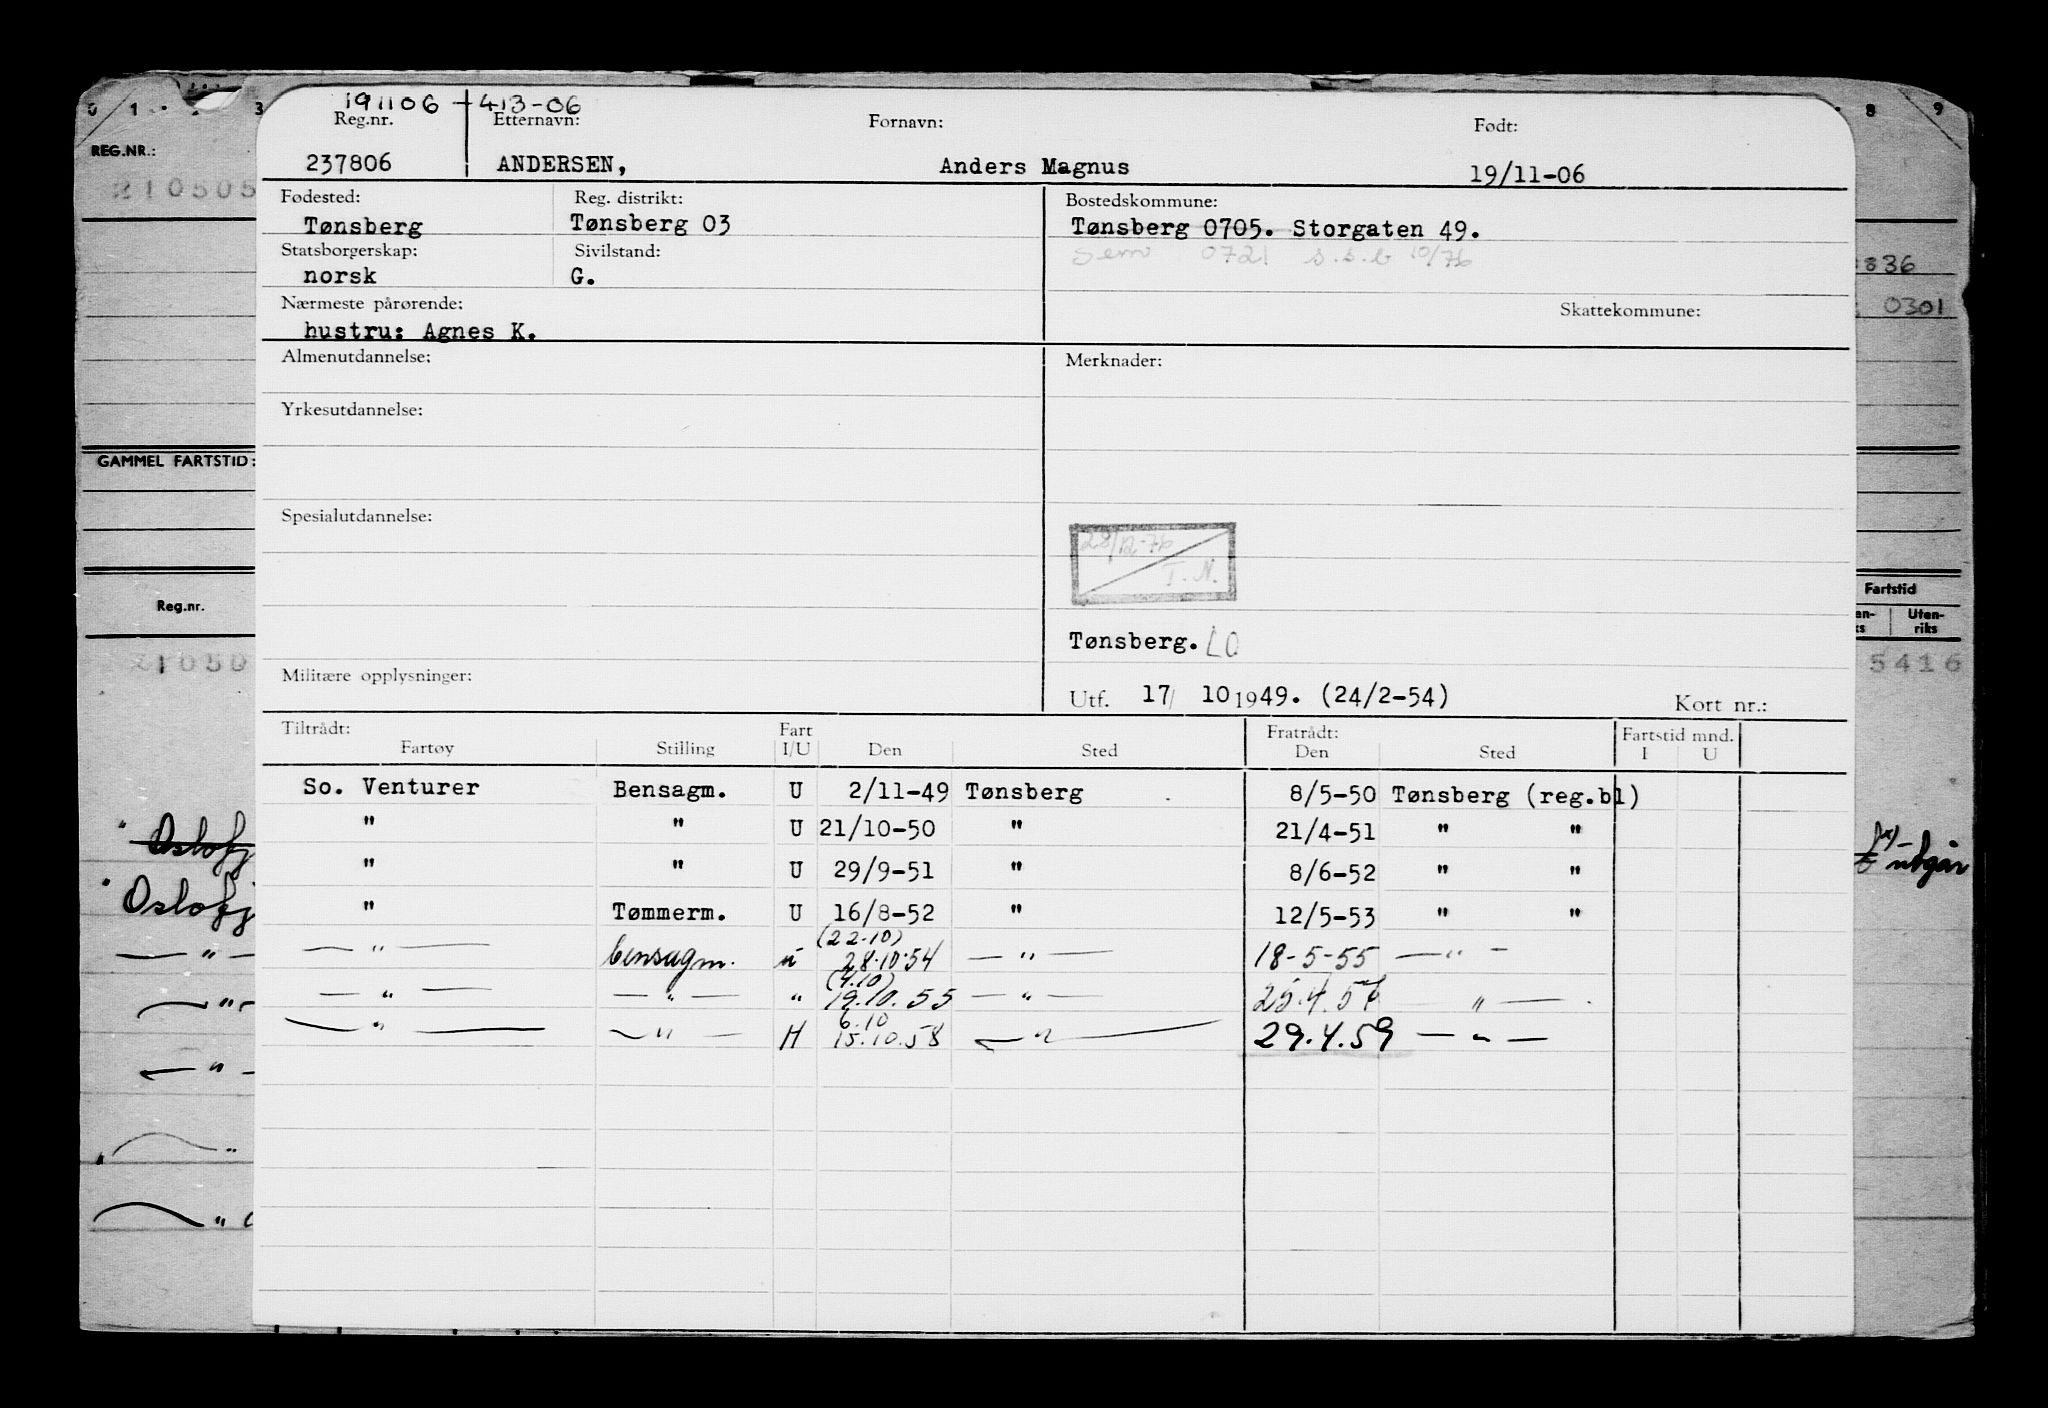 191106 413-06
Reg.nr. Etternavn: Fornavn: Født:
237806 ANDERSEN, Anders Magnus 19/11-06
Fødested: Reg. distrikt: Bostedskommune:
Tønsberg Tønsberg 03 Tønsberg 0705. Storgaten 49.
Statsborgerskap: Sivilstand: Sem 0721 s.s.b 10/76
norsk G.
Nærmeste pårørende: Skattekommune:
hustru: Agnes K.
Almenutdannelse: Merknader:
Yrkesutdannelse:
Spesialutdannelse:
28/12-76
T. N.
Tønsberg. LO
Militære opplysninger:
Utf. 17/ 10 1949. (24/2-54) Kort nr.:
Tiltrådt: Fart Fratrådt: Fartstid mnd.
Fartøy Stilling I/U Den Sted Den Sted I U
So. Venturer Bensagm. U 2/11-49 Tønsberg 8/5-50 Tønsberg (reg.bl)
" " U 21/10-50 " 21/4-51 " "
" " U 29/9-51 " 8/6-52 " "
" Tømmerm. U 16/8-52 " 12/5-53 " "
(22.10)
— " — bensagm. u 28.10.54 — " — 18-5-55 — " —
(4.10)
— " — — " — " 19.10.55 — " — 25.4.57 " —
6.10
— " — — " — H 15.10.58 — " — 29.4.59 — " —
0 1 3
REG.NR.:
210505
GAMMEL FARTSTID:
Reg.nr.
" Oslofj
" Oslofj
— " —
— " —
— " —
"
"
8 9
836
0301
Fartstid
en-ks Uten-riks
5416
utgår